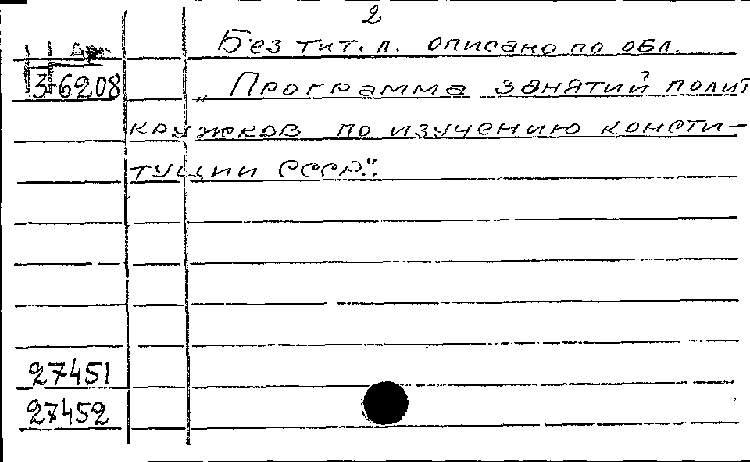 2
Без тит. л. описано по обл.
36208 „Программа занятий полит
кружков по изучению консти-
туции СССР".
27451
27452